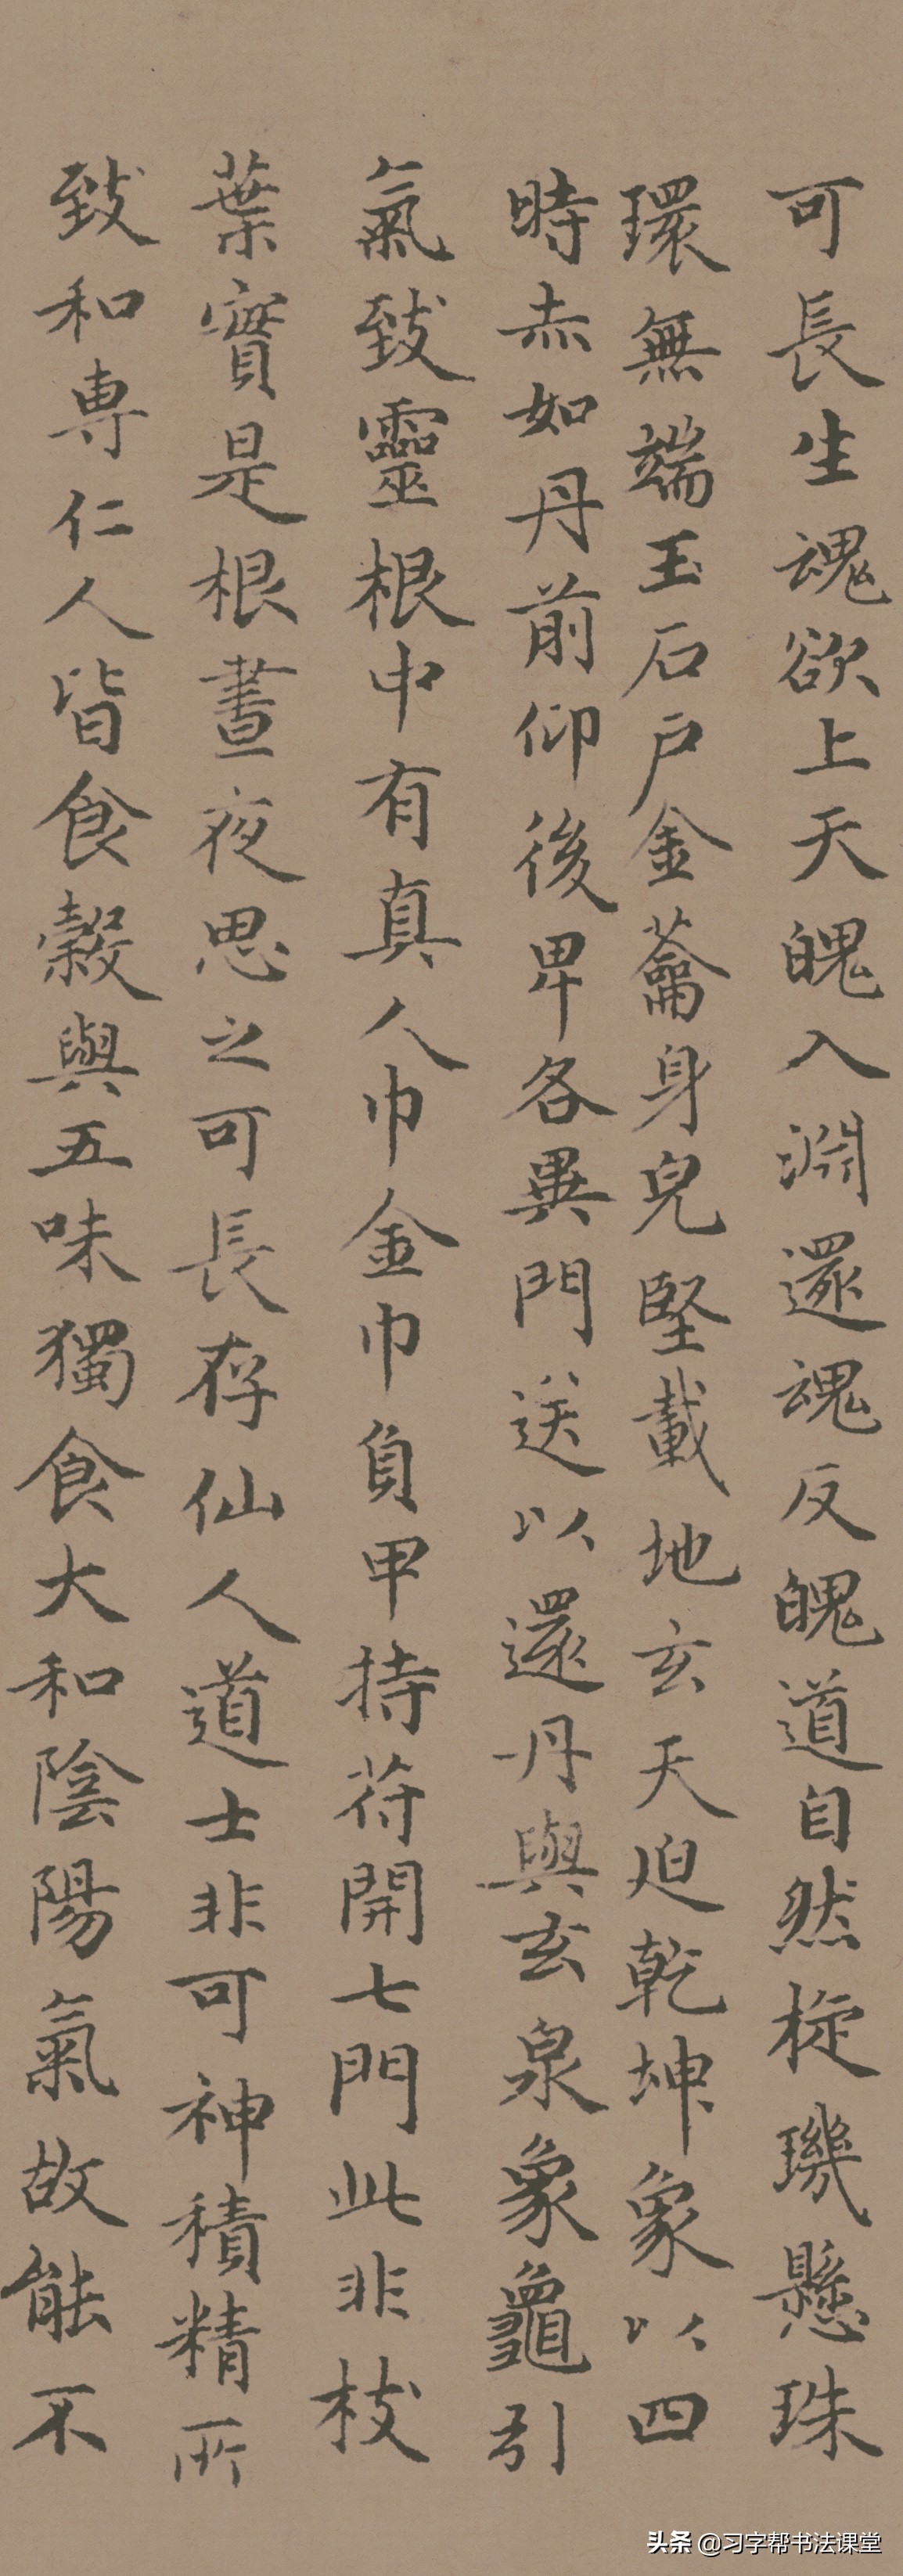 可長生魂欲上天魄入淵還魂反魄道自然㮄璣懸珠
環無端玉石戶金蘥身皃堅載地玄天迫乾坤象以四
時赤如丹前仰後卑各異門送以還丹與玄泉象龜引
氣致靈根中有真人巾金巾負甲持苻開七門此非枝
葉實是根晝夜思之可長存仙人道士非可神積精所
致和専仁人皆食穀與五味獨食大和陰陽氣故能不
头条 @习字帮书法课堂